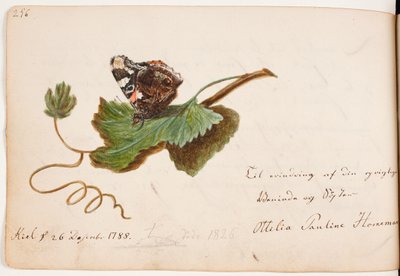 256
Til erindring af din oprigtige
Veninde og Syster
Ottilia Pauline Horneman
Kiel d 26 Septembr. 1788.
1826